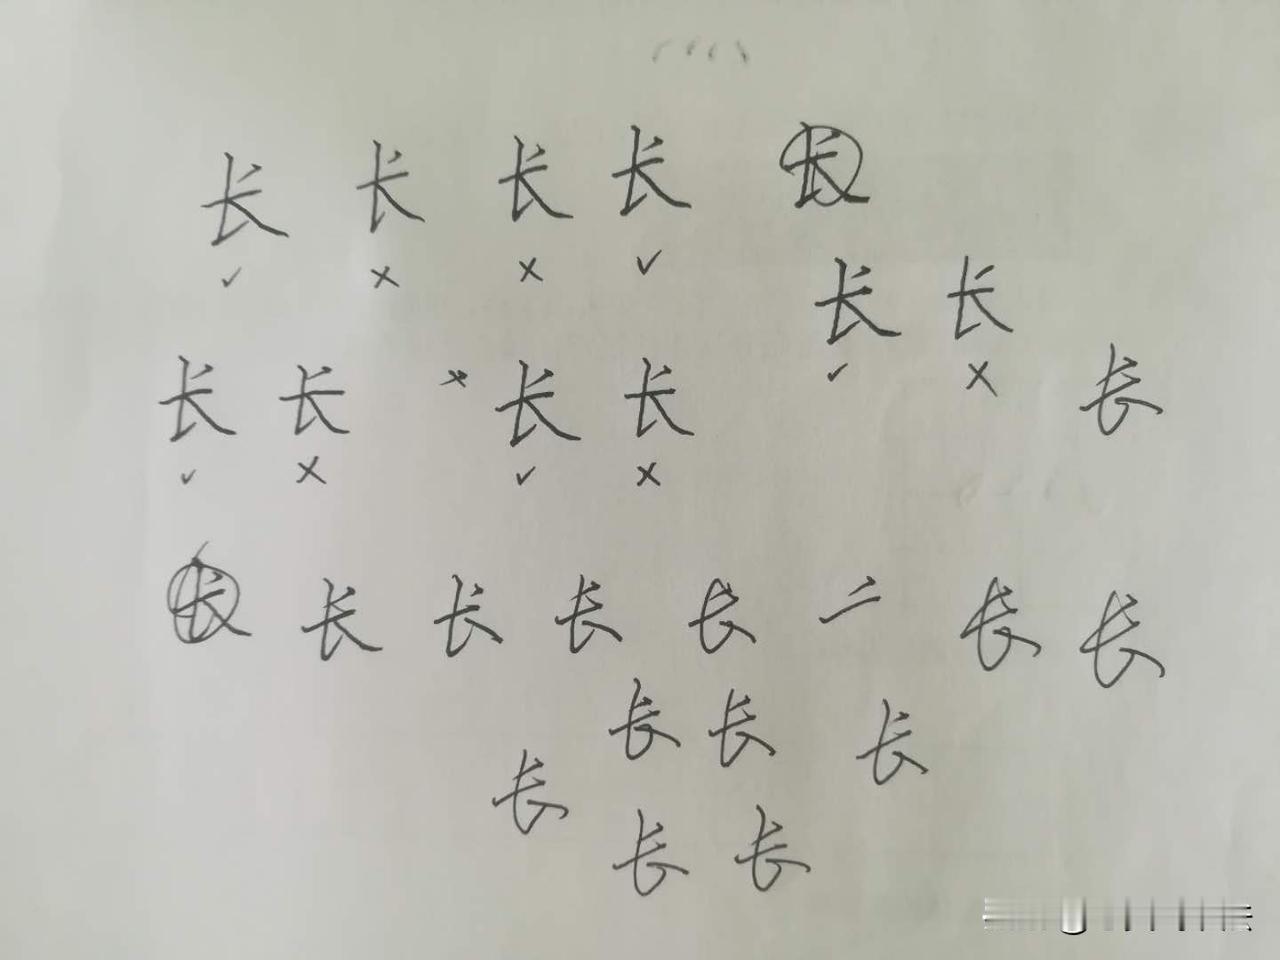 长 长 长 长 长
✓ × × ✓
长 长
✓ ×
长
长 长 × 长 长
✓ × ✓ ×
长 长 长 长 长 二 长 长
长 长 长
长
长 长